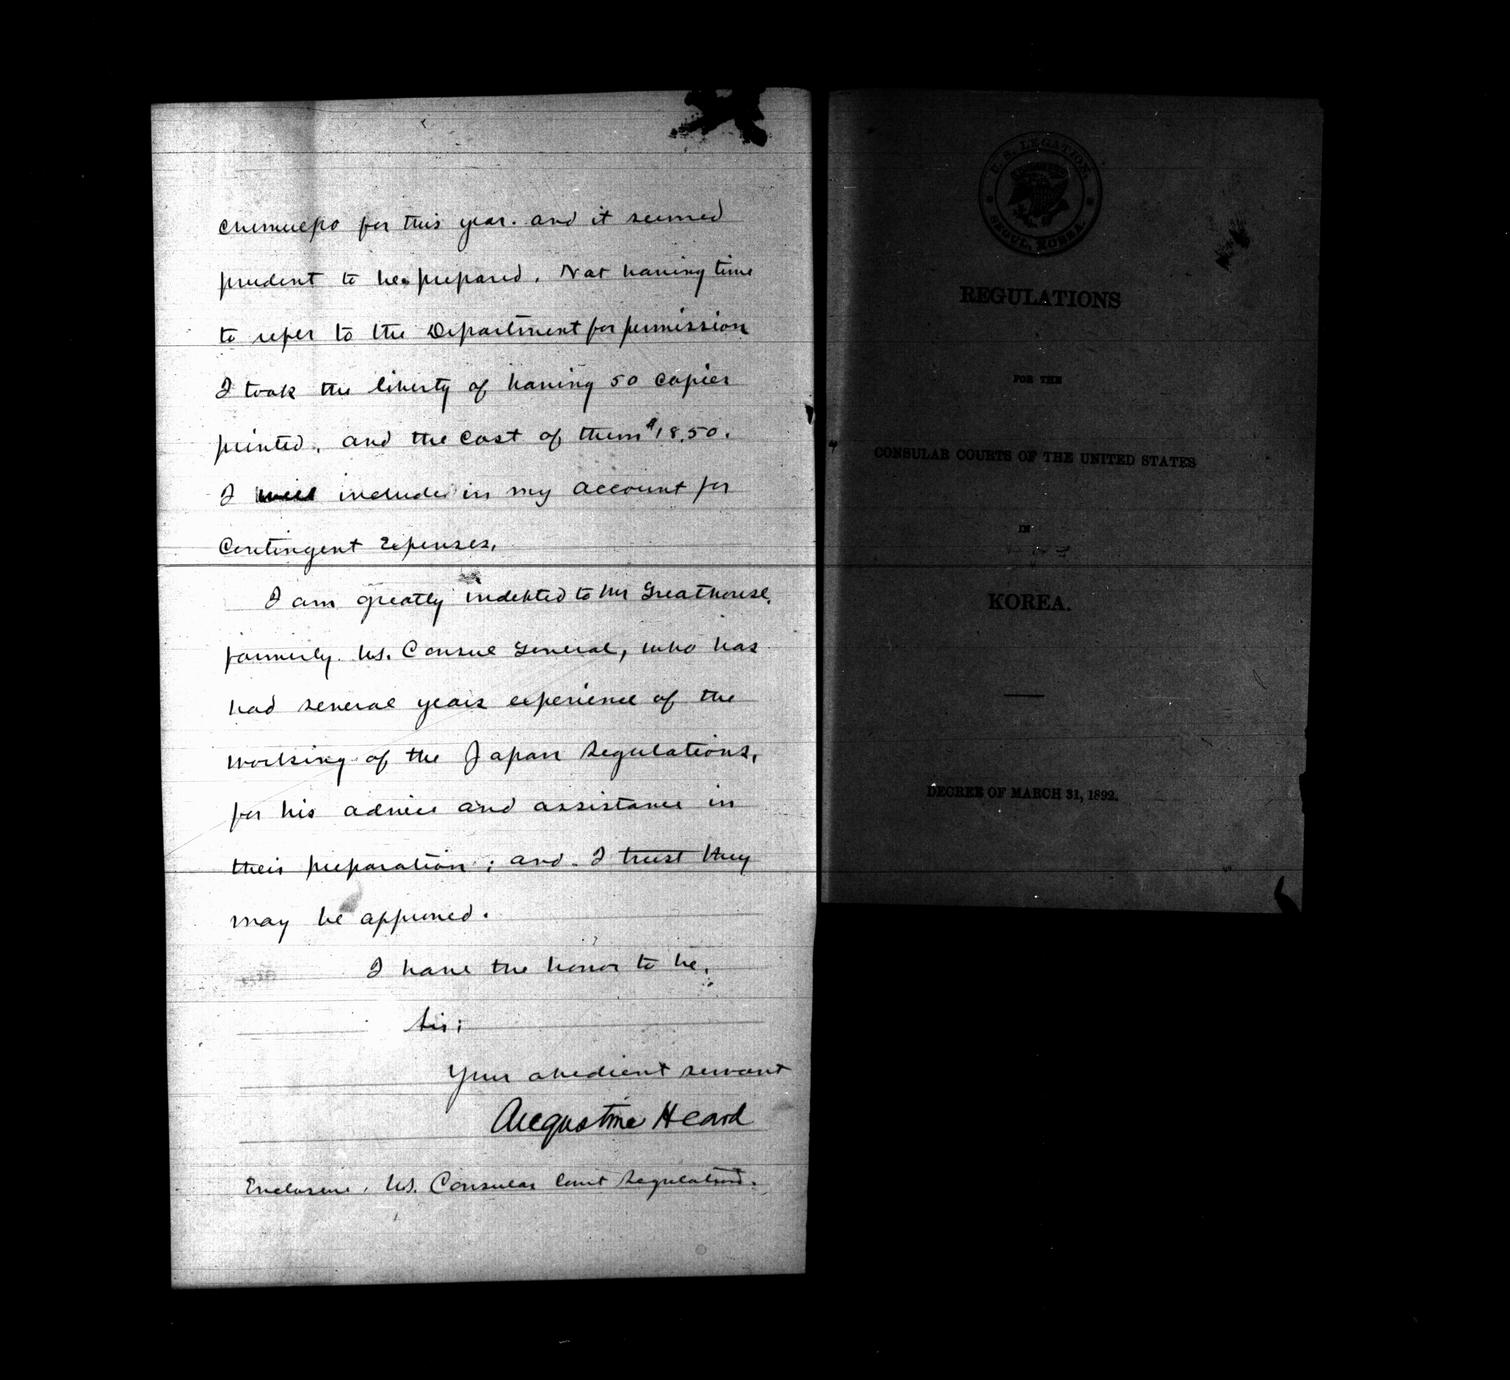 Chemulpo for this year. and it seemed
prudent to be prepared. Not having time
to refer to the Department for permission
I took the liberty of having 50 copies
printed, and the cost of them $18.50.
I will include in my account for
Contingent Expenses.
I am greatly indebted to Mr Greathouse,
formerly U.S. Consul General, who has
had several years experience of the
working of the Japan Regulations,
for his advice and assistance in
their preparation; and I trust they
may be approved.
I have the honor to be,
Sir;
Your obedient servant
Augustine Heard
Enclosure. U.S. Consular Court Regulations.
U. S. LEGATION.
SEOUL, KOREA.
REGULATIONS
FOR THE
CONSULAR COURTS OF THE UNITED STATES
IN
KOREA.
DECREE OF MARCH 31, 1892.